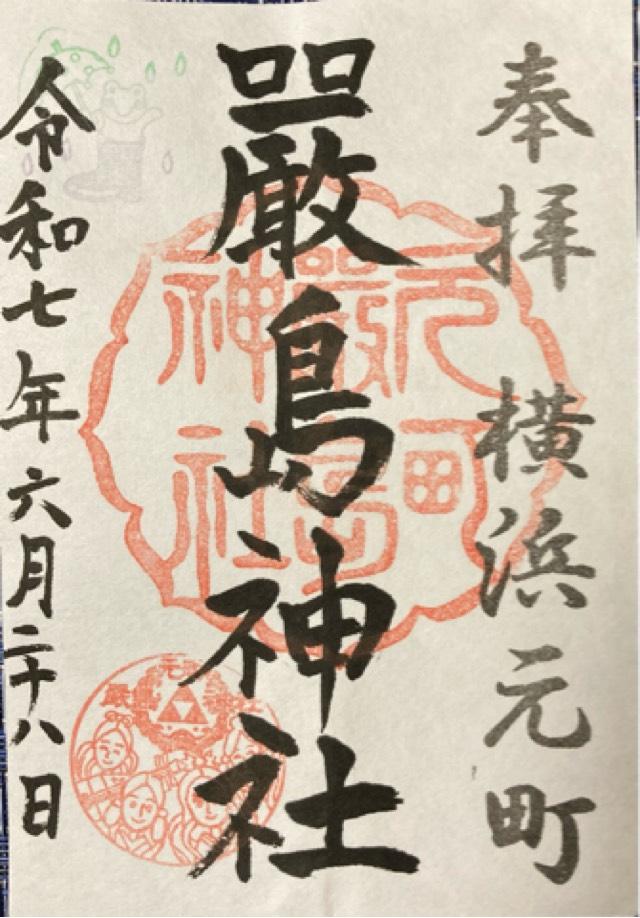 奉拝 横浜元町
嚴島神社
令和七年六月二十八日
元町
嚴島
神社